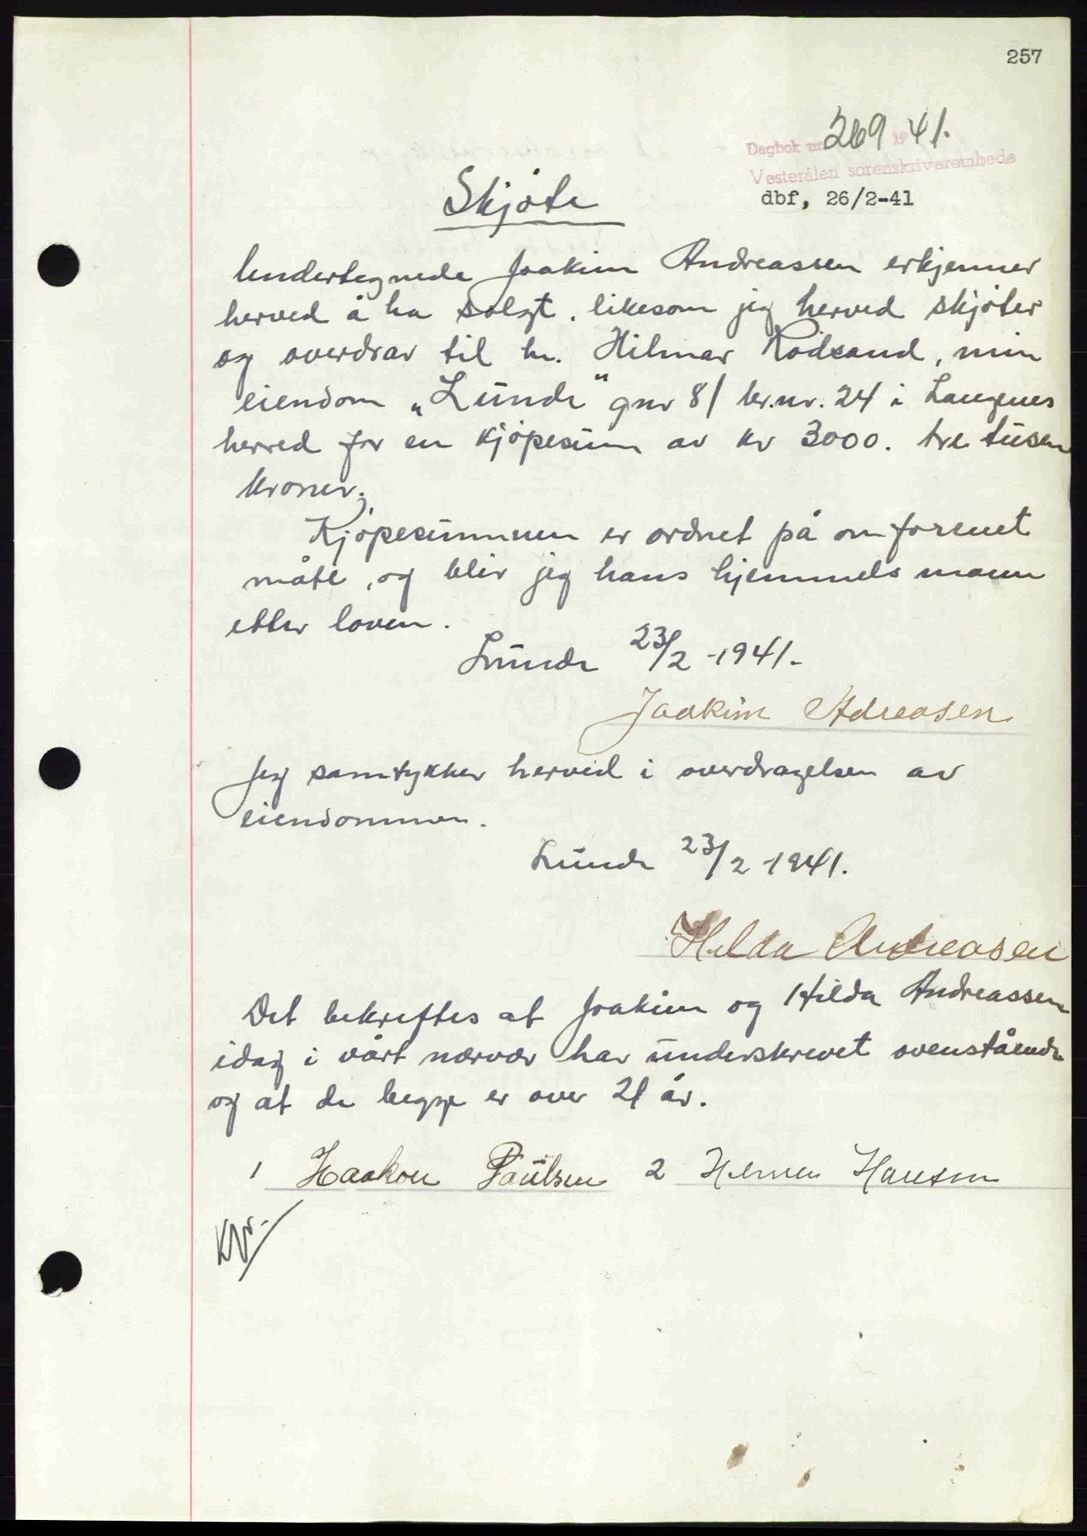 257
Dagbok nr. 269 19 41.
Vesterålen sorenskriverembede
dbf, 26/2-41
Skjøte
Undertegnede Joakim Andreassen erkjenner
herved å ha solgt, likesom jeg herved skjøter
og overdrar til hr. Hilmar Rødsand, min
eiendom „Lunde" gnr 81 br.nr. 24 i Langenes
herred for en kjøpesum av kr 3000. tre tusen
kroner.
Kjøpesummen er ordnet på omforenet
måte, og blir jeg hans hjemmelsmann
etter loven.
Lunde 23/2 -1941.-
Joakim Adreasen
Jeg samtykker herved i overdragelsen av
eiendommen.
Lunde 23/2 -1941.
Hilda Andreasen
Det bekreftes at Joakim og Hilda Andreassen
idag i vårt nærvær har underskrevet ovenstående
og at de begge er over 21 år.
1 Haakon Paulsen 2 Hansen